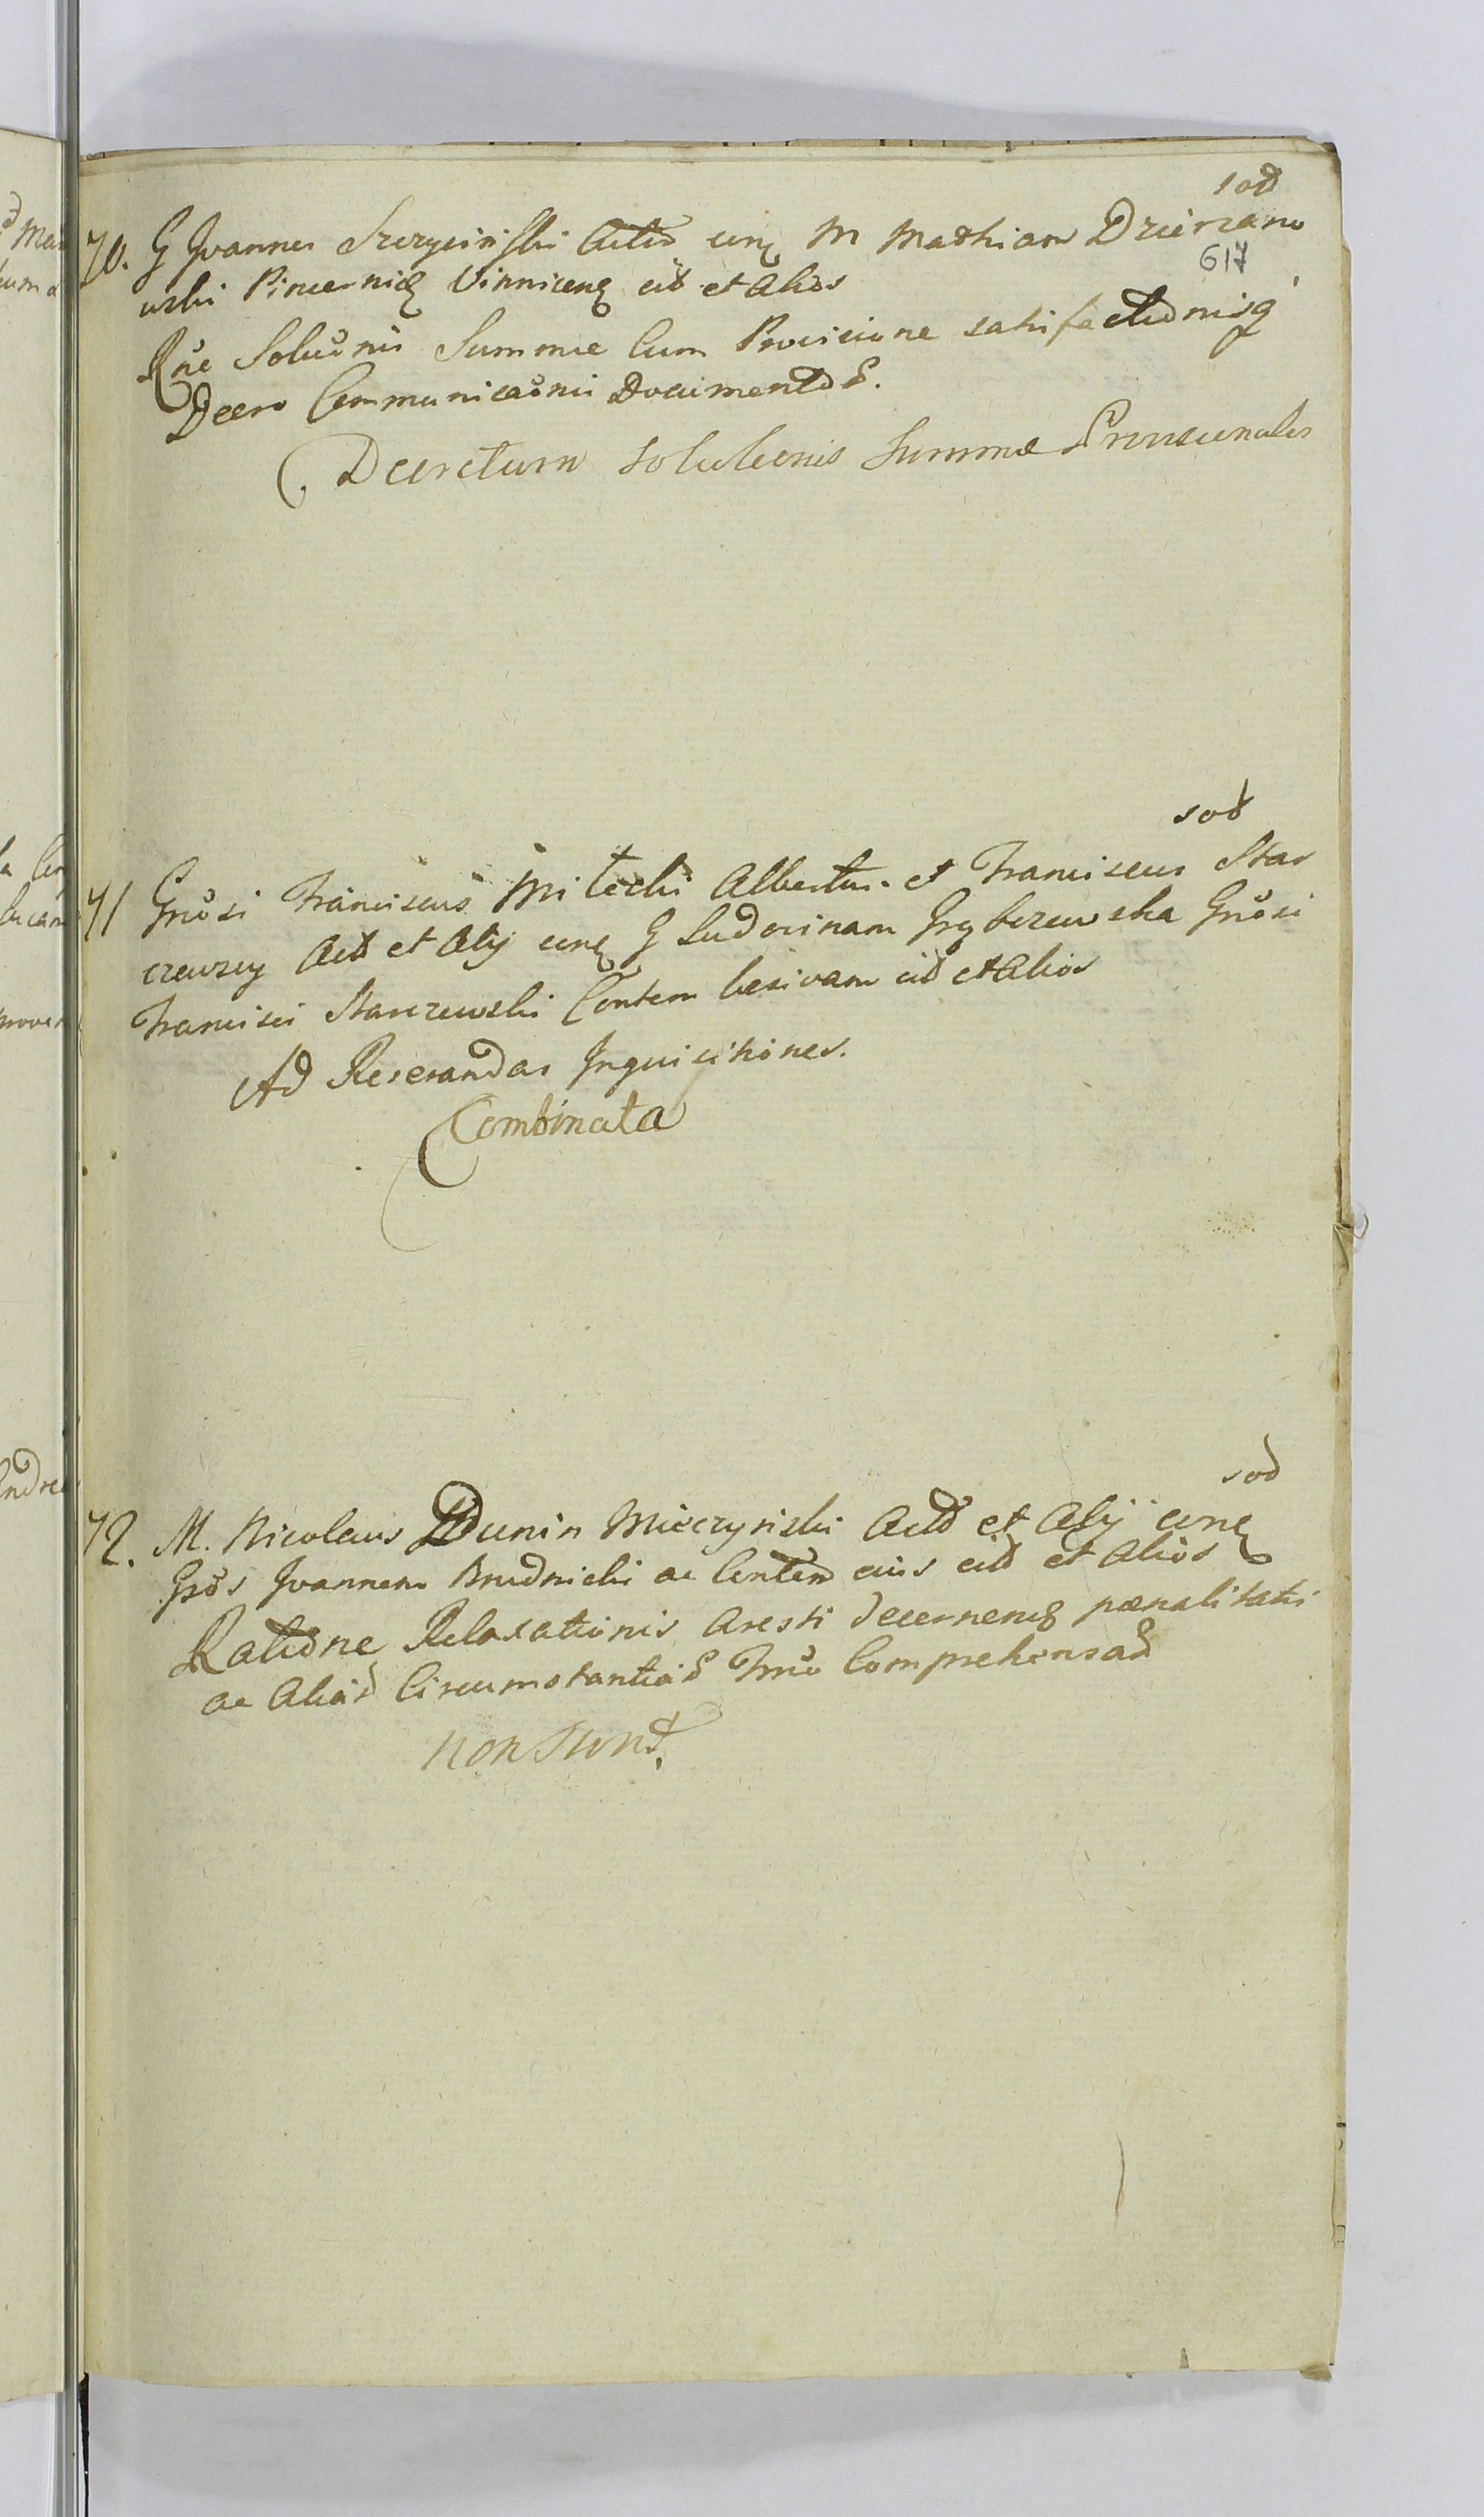 sod
70. G Joannes Szczyciński Actor cong M Mathiam Dzierzano
617
wski Pincernid Vinniceng cit et Alios
Rne Soluonis Summe Cum Provisione satisfactionisq
Decro Communicaonis Documentor.
Decretum solutionis Summæ Provisionales
sod
71 Gnosi Franciscus Mitecki Albertus et Franciscus Star
czewscy Act et Alij cong G Ludovinam Grzybczewska Gnosi
Francisci Starczewski Contem lesivam cit et Alios
Ad Reserandas Inquisitiones.
Combinata
sod
72. M. Nicolaus Dunin Mieczyński Act et Alij cong
Gnos Joannem Brudnicki ac Contem eius cit et Alios
Ratione Relaxationis Aresti decernend pænalitatis
ac Aliad Circumstantiad Inno Comprehensad
non sunt.